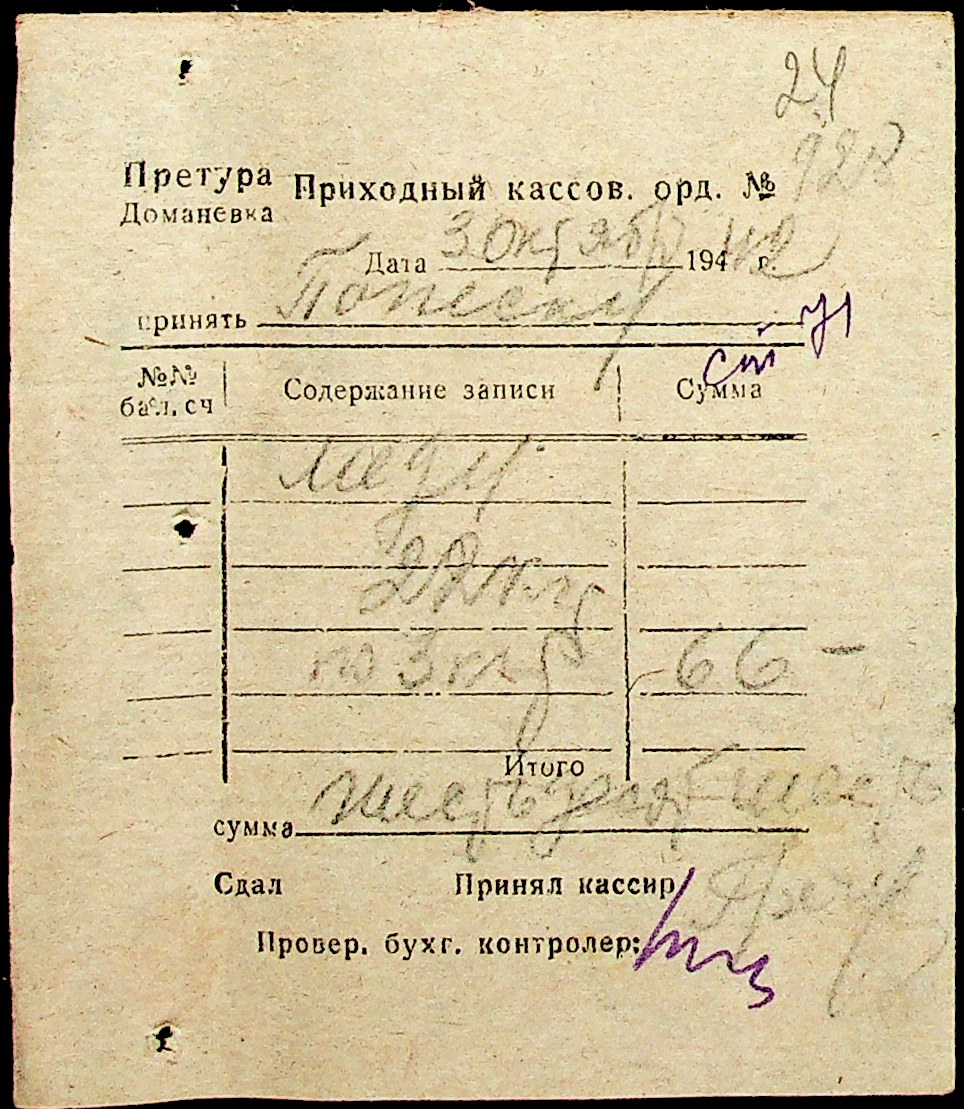 24
928
Претура
Доманевка
Приходный кассов. орд. №
Дата 3 Октября 1942 г.
принять Попеску
№№ бал. сч
Содержание записи
Сумма
22 кгр
по 3 мр 66 —
Итого
сумма шестьдесят шесть
Сдал Принял кассир
Провер. бухг. контролер: